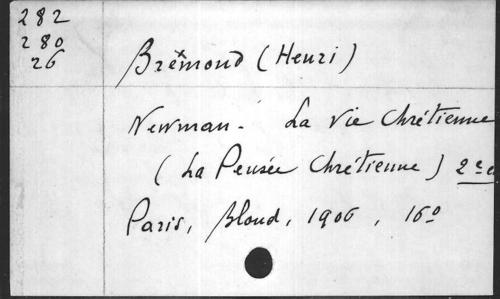 282
280
26
Brémond (Henri)
Newman - La Vie Chrétienne
(La Pensée Chrétienne) 2e e
Paris, Bloud, 1906, 16o